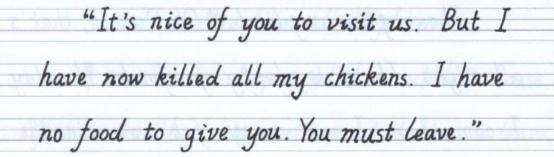 “It's nice of you to visit us. But I
have now killed all my chickens. I have
no food to give you. You must leave.”